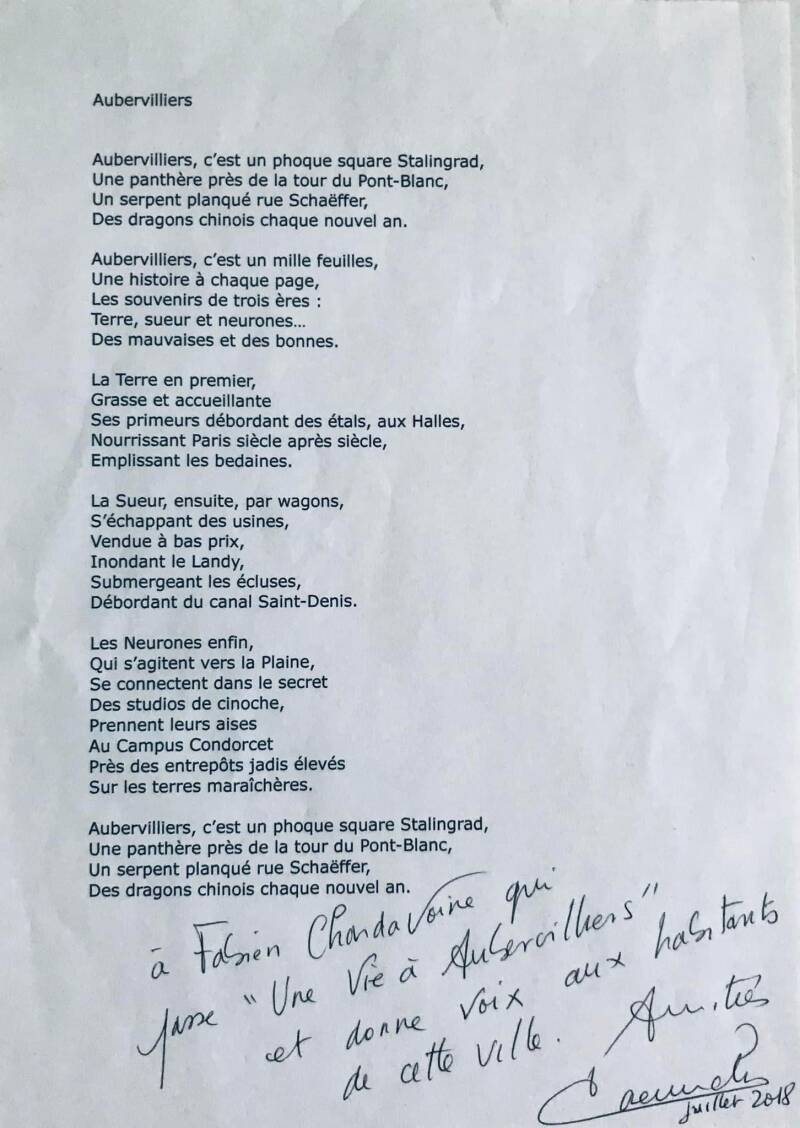 Aubervilliers
Aubervilliers, c'est un phoque square Stalingrad,
Une panthère près de la tour du Pont-Blanc,
Un serpent planqué rue Schaëffer,
Des dragons chinois chaque nouvel an.
Aubervilliers, c'est un mille feuilles,
Une histoire à chaque page,
Les souvenirs de trois ères :
Terre, sueur et neurones...
Des mauvaises et des bonnes.
La Terre en premier,
Grasse et accueillante
Ses primeurs débordant des étals, aux Halles,
Nourrissant Paris siècle après siècle,
Emplissant les bedaines.
La Sueur, ensuite, par wagons,
S'échappant des usines,
Vendue à bas prix,
Inondant le Landy,
Submergeant les écluses,
Débordant du canal Saint-Denis.
Les Neurones enfin,
Qui s'agitent vers la Plaine,
Se connectent dans le secret
Des studios de cinoche,
Prennent leurs aises
Au Campus Condorcet
Près des entrepôts jadis élevés
Sur les terres maraîchères.
Aubervilliers, c'est un phoque square Stalingrad,
Une panthère près de la tour du Pont-Blanc,
Un serpent planqué rue Schaëffer,
Des dragons chinois chaque nouvel an.
à Fabien Chandavoine qui
passe "Une Vie à Aubervilliers"
et donne voix aux habitants
de cette ville. Amitiés
juillet 2018